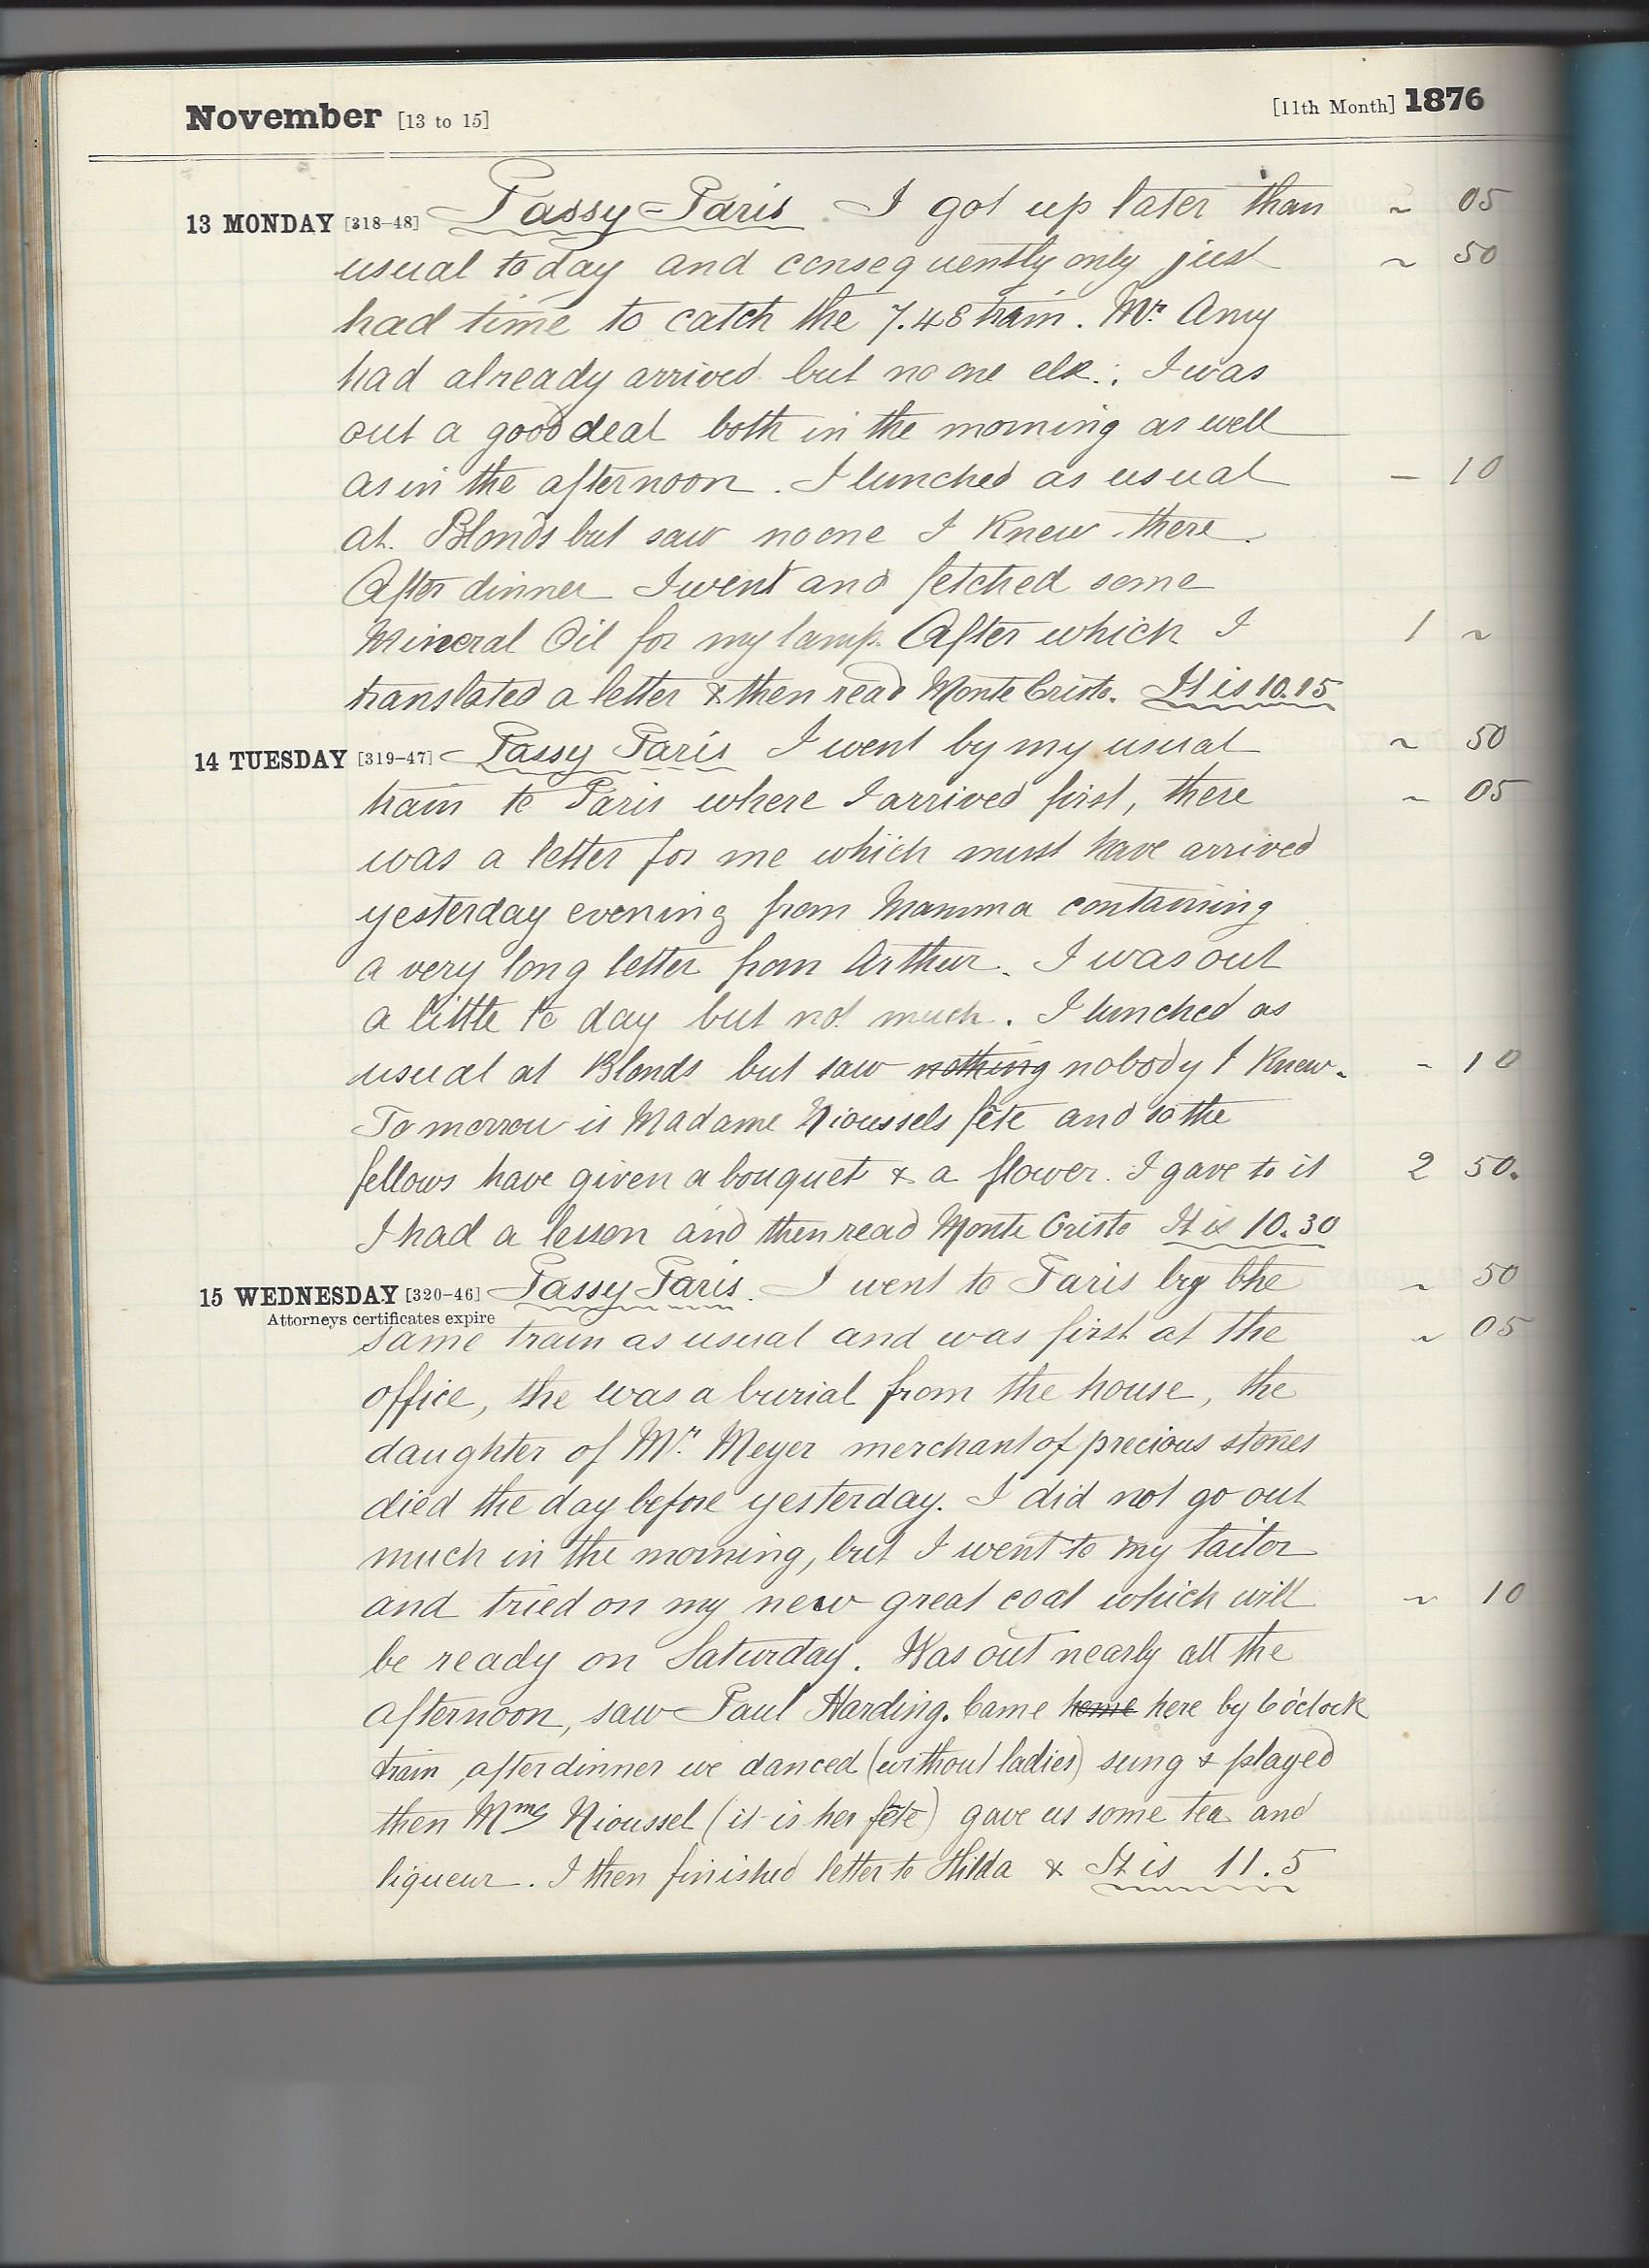 November [13 to 15] [11th Month] 1876
13 MONDAY [318-48] Passy-Paris. I got up later than ~ 05
usual to day and consequently only just ~ 50
had time to catch the 7.48 train. Mr Amy
had already arrived but no one else. I was
out a good deal both in the morning as well
as in the afternoon. I lunched as usual – 10
at Blonds but saw no one I knew there.
After dinner I went and fetched some
Mineral Oil for my lamp. After which I 1 ~
translated a letter & then read Monte Cristo. It is 10.15
14 TUESDAY [319-47] Passy Paris I went by my usual ~ 50
train to Paris where I arrived first, there ~ 05
was a letter for me which must have arrived
yesterday evening from Mamma containing
a very long letter from Arthur. I was out
a little to day but not much. I lunched as
usual at Blonds but saw nothing nobody I knew. - 10
To morrow is Madame Nioussels fête and so the
fellows have given a bouquet & a flower. I gave to it 2 50.
I had a lesson and then read Monte Cristo It is 10.30
15 WEDNESDAY [320-46] Passy Paris. I went to Paris by the ~ 50
Attorneys certificates expire
same train as usual and was first at the ~ 05
office, the was a burial from the house, the
daughter of Mr. Meyer merchant of precious stones
died the day before yesterday. I did not go out
much in the morning, but I went to my tailor
and tried on my new great coat which will ~ 10
be ready on Saturday. Was out nearly all the
afternoon, saw Paul Harding. Came home here by 6 o'clock
train, after dinner we danced (without ladies) sung & played
then Mme Nioussel (it is her fête) gave us some tea and
liqueur. I then finished letter to Hilda & It is 11.5